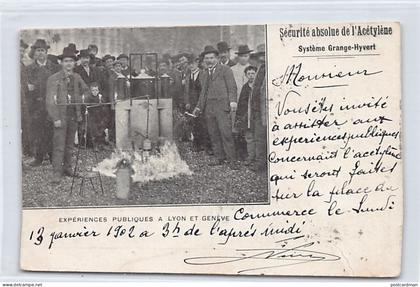 Sécurité absolue de l'Acétylène
Système Grange-Hyvert
Monsieur
Vous êtes invité
à assister aux
expériences publiques
concernant l'acétylène
qui seront faites
sur la place du
Commerce le Lundi
EXPÉRIENCES PUBLIQUES A LYON ET GENÈVE
13 janvier 1902 a 3h de l'après midi
postcardman.com